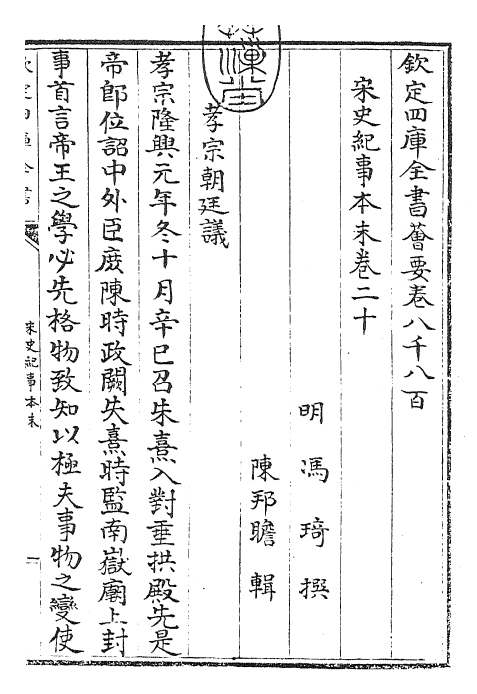 欽定四庫全書薈要卷八千八百
宋史紀事本末卷二十
明 馮琦 撰
陳邦瞻 輯
孝宗朝廷議
孝宗隆興元年冬十月辛巳召朱熹入對垂拱殿先是
帝即位詔中外臣庶陳時政闕失熹時監南嶽廟上封
事首言帝王之學必先格物致知以極夫事物之變使
欽定四庫全書
宋史紀事本末
一